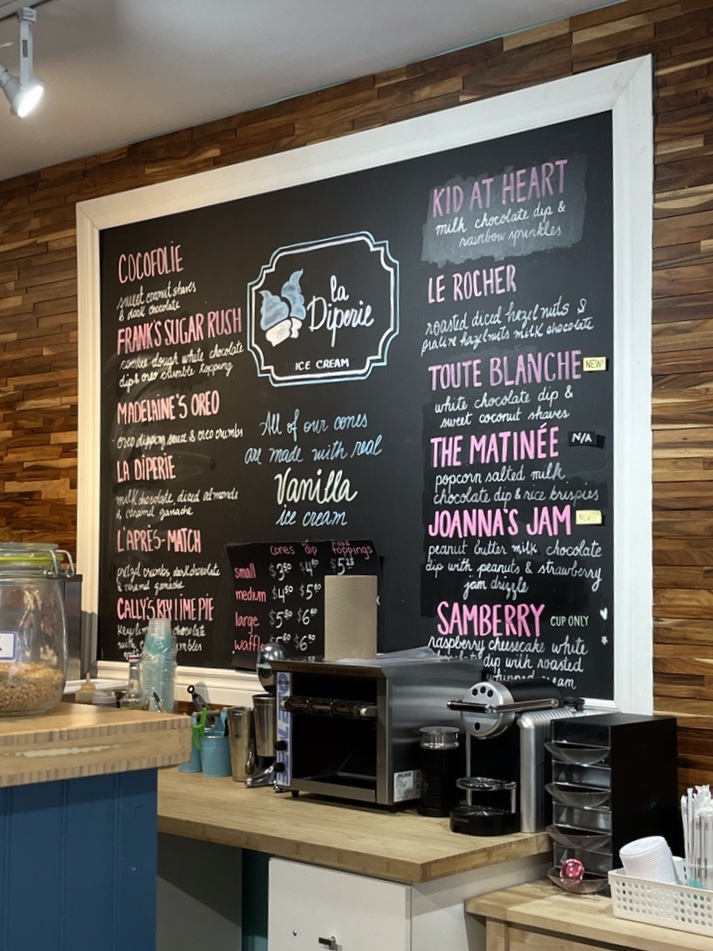 COCOFOLIE
sweet coconut shavs
& dark chocolate
FRANK'S SUGAR RUSH
cookie dough white chocolate
dip & oreo crumble topping
MADELAINE'S OREO
oreo dipping sauce & oreo crumbs
LA DIPERIE
milk chocolate, diced almonds
& caramel ganache
L'APRÈS-MATCH
pretzel crumbs, dark chocolate
& caramel ganache
CALLY'S KEY LIME PIE
Key lime chocolate
with
la
Diperie
ICE CREAM
All of our cones
are made with real
Vanilla
ice cream
cones dip toppings
small
medium
large
waffle
KID AT HEART
milk chocolate dip &
rainbow sprinkles
LE ROCHER
roasted diced hazelnuts &
praline hazelnuts milk chocolate
TOUTE BLANCHE NEW!
white chocolate dip &
sweet coconut shaves
THE MATINÉE N/A
popcorn salted milk
chocolate dip & rice krispies
JOANNA'S JAM NEW!
peanut butter milk chocolate
dip with peanuts & strawberry
jam drizzle
SAMBERRY CUP ONLY
raspberry cheesecake white
dip with roasted